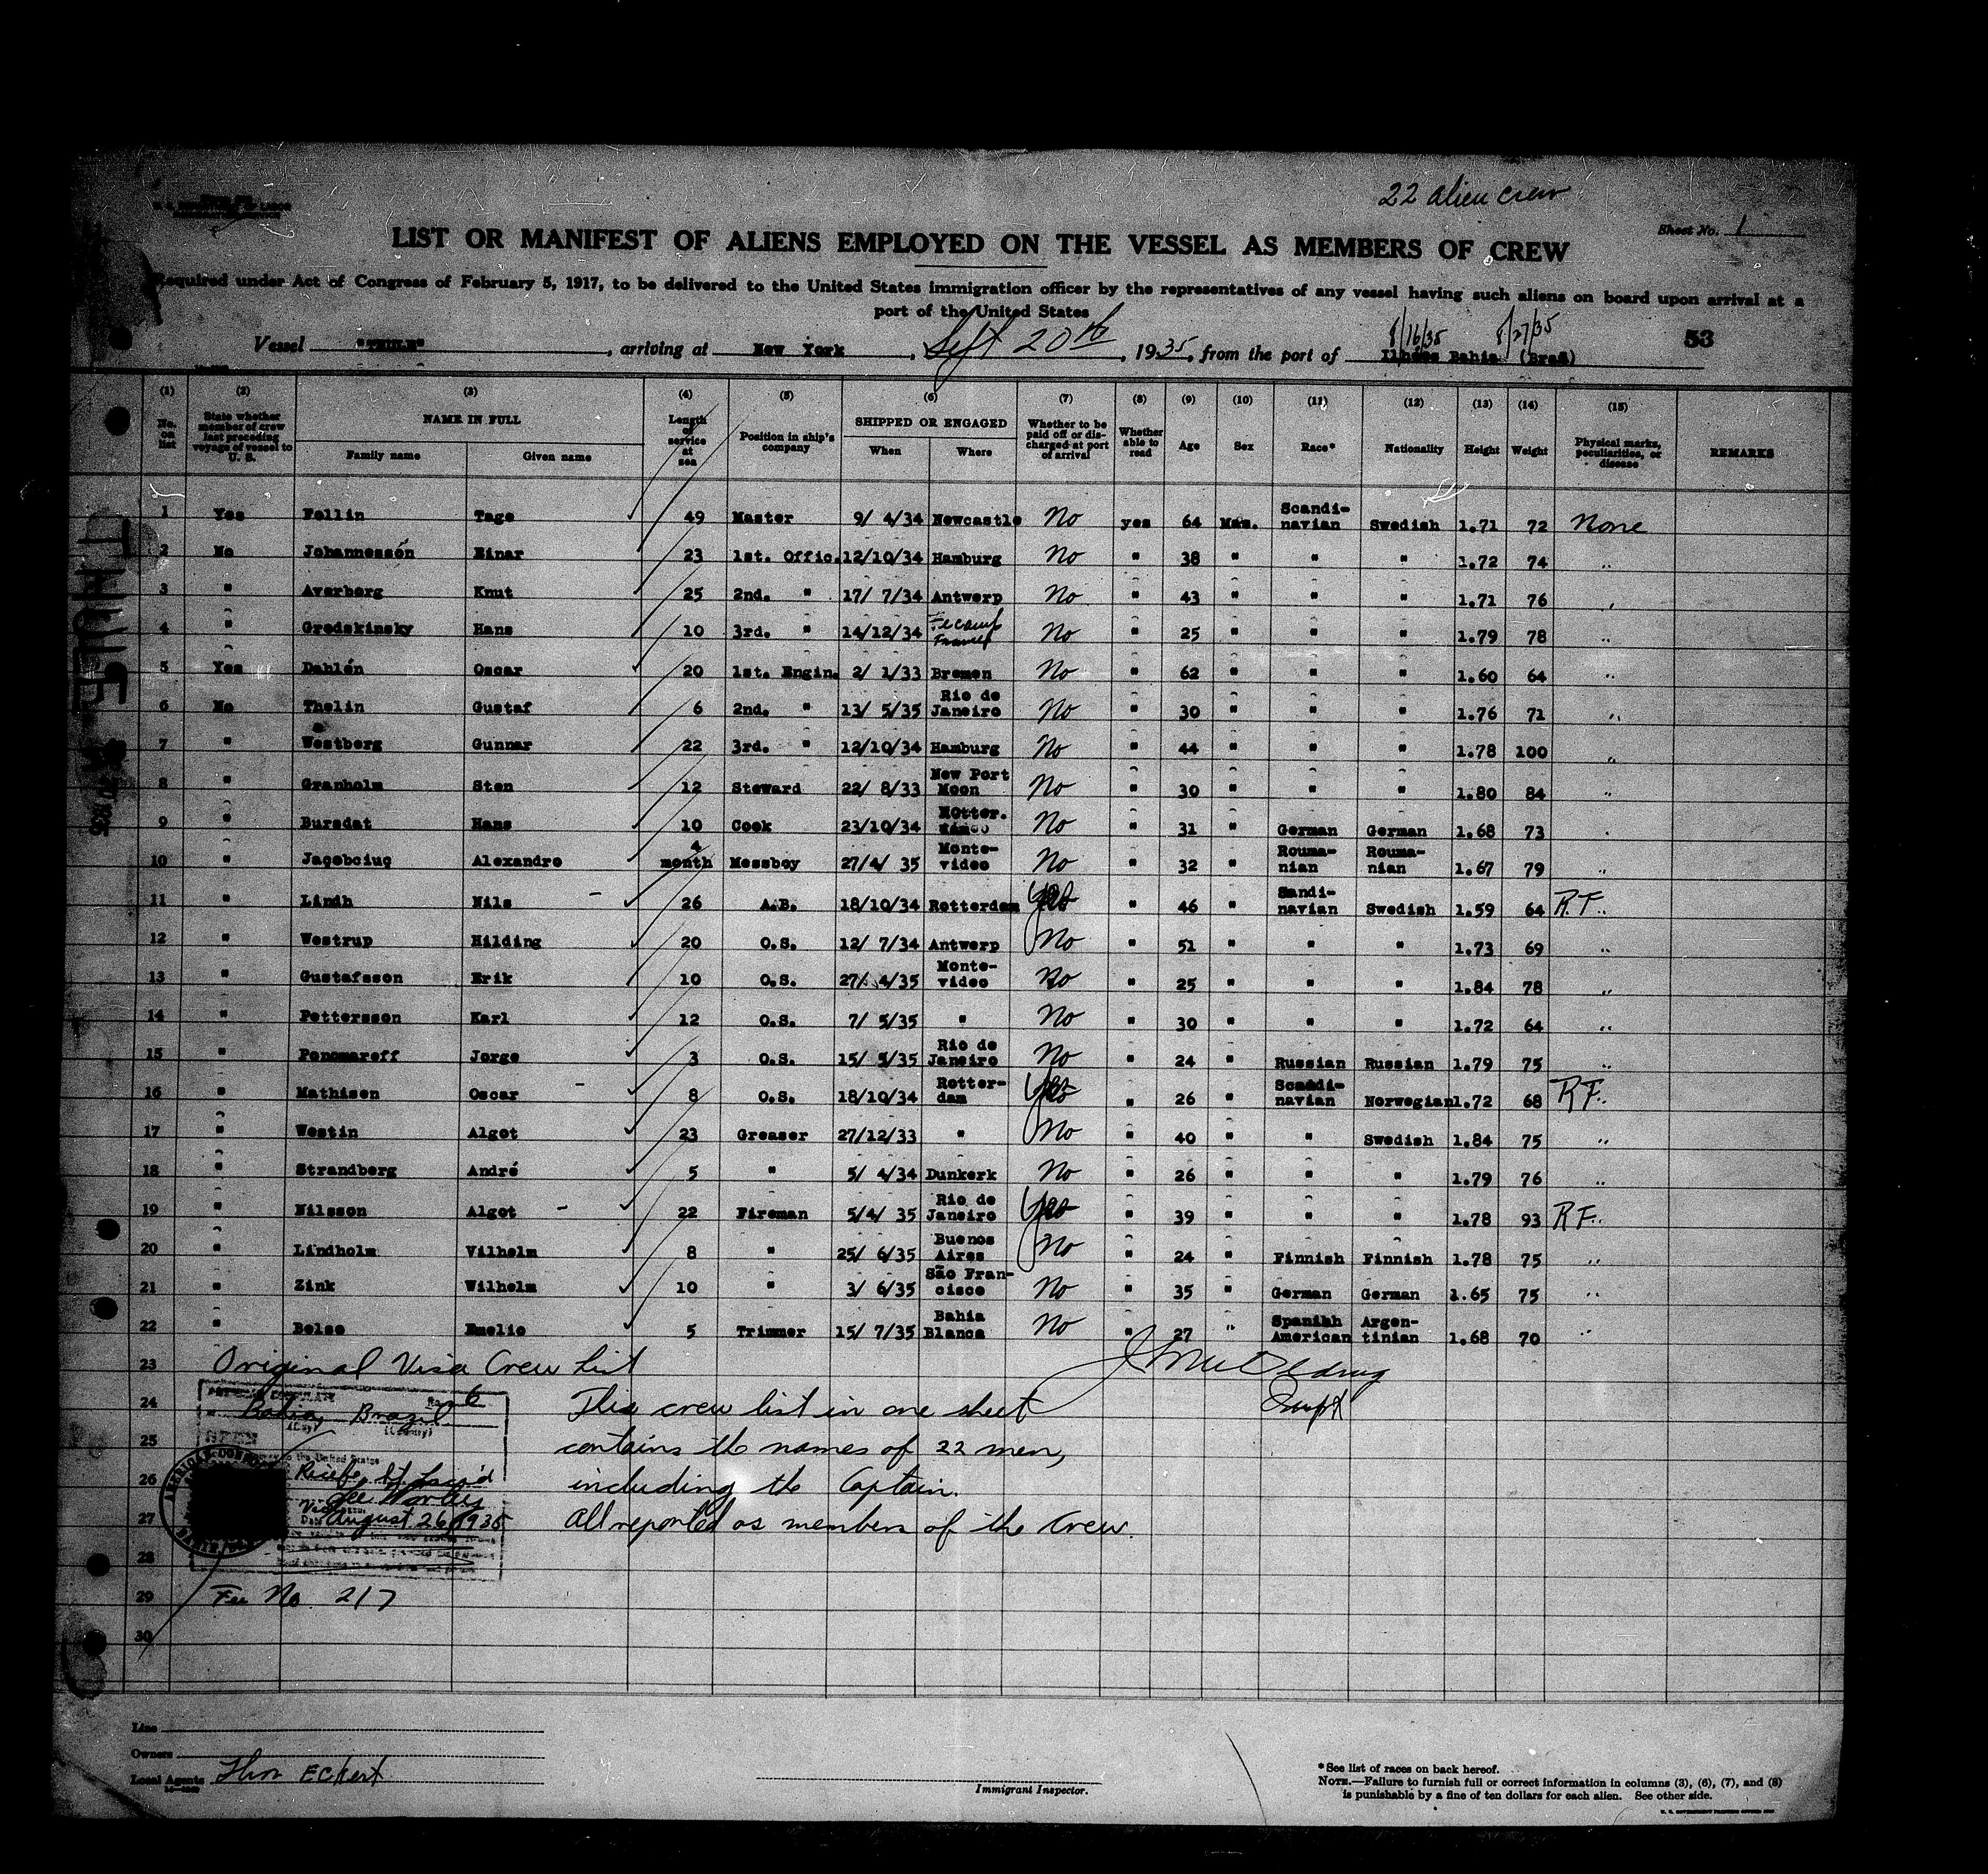 22 alien crew
Sheet No. 1
LIST OR MANIFEST OF ALIENS EMPLOYED ON THE VESSEL AS MEMBERS OF CREW
Required under Act of Congress of February 5, 1917, to be delivered to the United States immigration officer by the representatives of any vessel having such aliens on board upon arrival at a
port of the United States
8/16/35 8/27/35
Vessel "THULE", arriving at New York, Sept 20th, 1935, from the port of Ilhéos Bahia (Bras)
53
(1) (2) (3) (4) (5) (6) (7) (8) (9) (10) (11) (12) (13) (14) (15)
No. on list
State whether member of crew last preceding voyage of vessel to U. S.
NAME IN FULL
Family name Given name
Length of service at sea
Position in ship's company
SHIPPED OR ENGAGED
When Where
Whether to be paid off or discharged at port of arrival
Whether able to read
Age
Sex
Race*
Nationality
Height
Weight
Physical marks, peculiarities, or disease
REMARKS
1 Yes Fellin Tage 49 Master 9/ 4/34 Newcastle No yes 64 Man. Scandi-navian Swedish 1.71 72 None
2 No Johannesson Einar 23 1st. Offic. 12/10/34 Hamburg No " 38 " " " 1.72 74 "
3 " Averborg Knut 25 2nd. " 17/ 7/34 Antwerp No " 43 " " " 1.71 76 "
4 " Gredskinsky Hans 10 3rd. " 14/12/34 Fecamp No " 25 " " " 1.79 78 "
5 Yes Dahlén Oscar 20 1st. Engin. 2/ 1/33 Bremen No " 62 " " " 1.60 64 "
6 No Thelin Gustaf 6 2nd. " 13/ 5/35 Rio de Janeiro No " 30 " " " 1.76 71 "
7 " Westberg Gunnar 22 3rd. " 12/10/34 Hamburg No " 44 " " " 1.78 100 "
8 " Granholm Sten 12 Steward 22/ 8/33 New Port Moon No " 30 " " " 1.80 84 "
9 " Bursdat Hans 10 Cook 23/10/34 No " 31 " German German 1.68 73 "
10 " Jagobciug Alexandre 4 month Messboy 27/4/ 35 Monte-video No " 32 " Rouma-nian Rouma-nian 1.67 79 "
11 " Lindh Nils - 26 A.B. 18/10/34 Rotterdam Yes " 46 " Sandi-navian Swedish 1.59 64 R.F. "
12 " Westrup Hilding 20 O.S. 12/ 7/34 Antwerp No " 51 " " " 1.73 69 "
13 " Gustafsson Erik 10 O.S. 27/ 4/35 Monte-video No " 25 " " " 1.84 78 "
14 " Pettersson Karl 12 O.S. 7/ 5/35 " No " 30 " " " 1.72 64 "
15 " Ponomareff Jorge 3 O.S. 15/ 5/35 Rio de Janeiro No " 24 " Russian Russian 1.79 75 "
16 " Mathisen Oscar - 8 O.S. 18/10/34 Rotter-dam Yes " 26 " Scandi-navian Norwegian 1.72 68 R.F. "
17 " Westin Algot 23 Greaser 27/12/33 " No " 40 " " Swedish 1.84 75 "
18 " Strandberg André 5 " 5/ 4/34 Dunkerk No " 26 " " " 1.79 76 "
19 " Nilsson Algot - 22 Fireman 5/4/ 35 Rio de Janeiro Yes " 39 " " " 1.78 93 R.F. "
20 " Lindholm Vilhelm 8 " 25/ 6/35 Buenos Aires No " 24 " Finnish Finnish 1.78 75 "
21 " Zink Wilhelm 10 " 3/ 6/35 São Fran-cisco No " 35 " German German 1.65 75 "
22 " Belso Emelio 5 Trimmer 15/ 7/35 Bahia Blanca No " 27 " Spanish American Argen-tinian 1.68 70 "
23 Original Visa Crew List
24 Bahia, Brazil
This crew list in one sheet
25 contains the names of 22 men,
26 including the Captain.
27 All reported as members of the Crew.
August 26, 1935
28
29 Fee No. 217
30
THULE
Line
Owners
Local Agents Thor Eckert
Immigrant Inspector.
*See list of races on back hereof.
NOTE.—Failure to furnish full or correct information in columns (3), (6), (7), and (8)
is punishable by a fine of ten dollars for each alien. See other side.